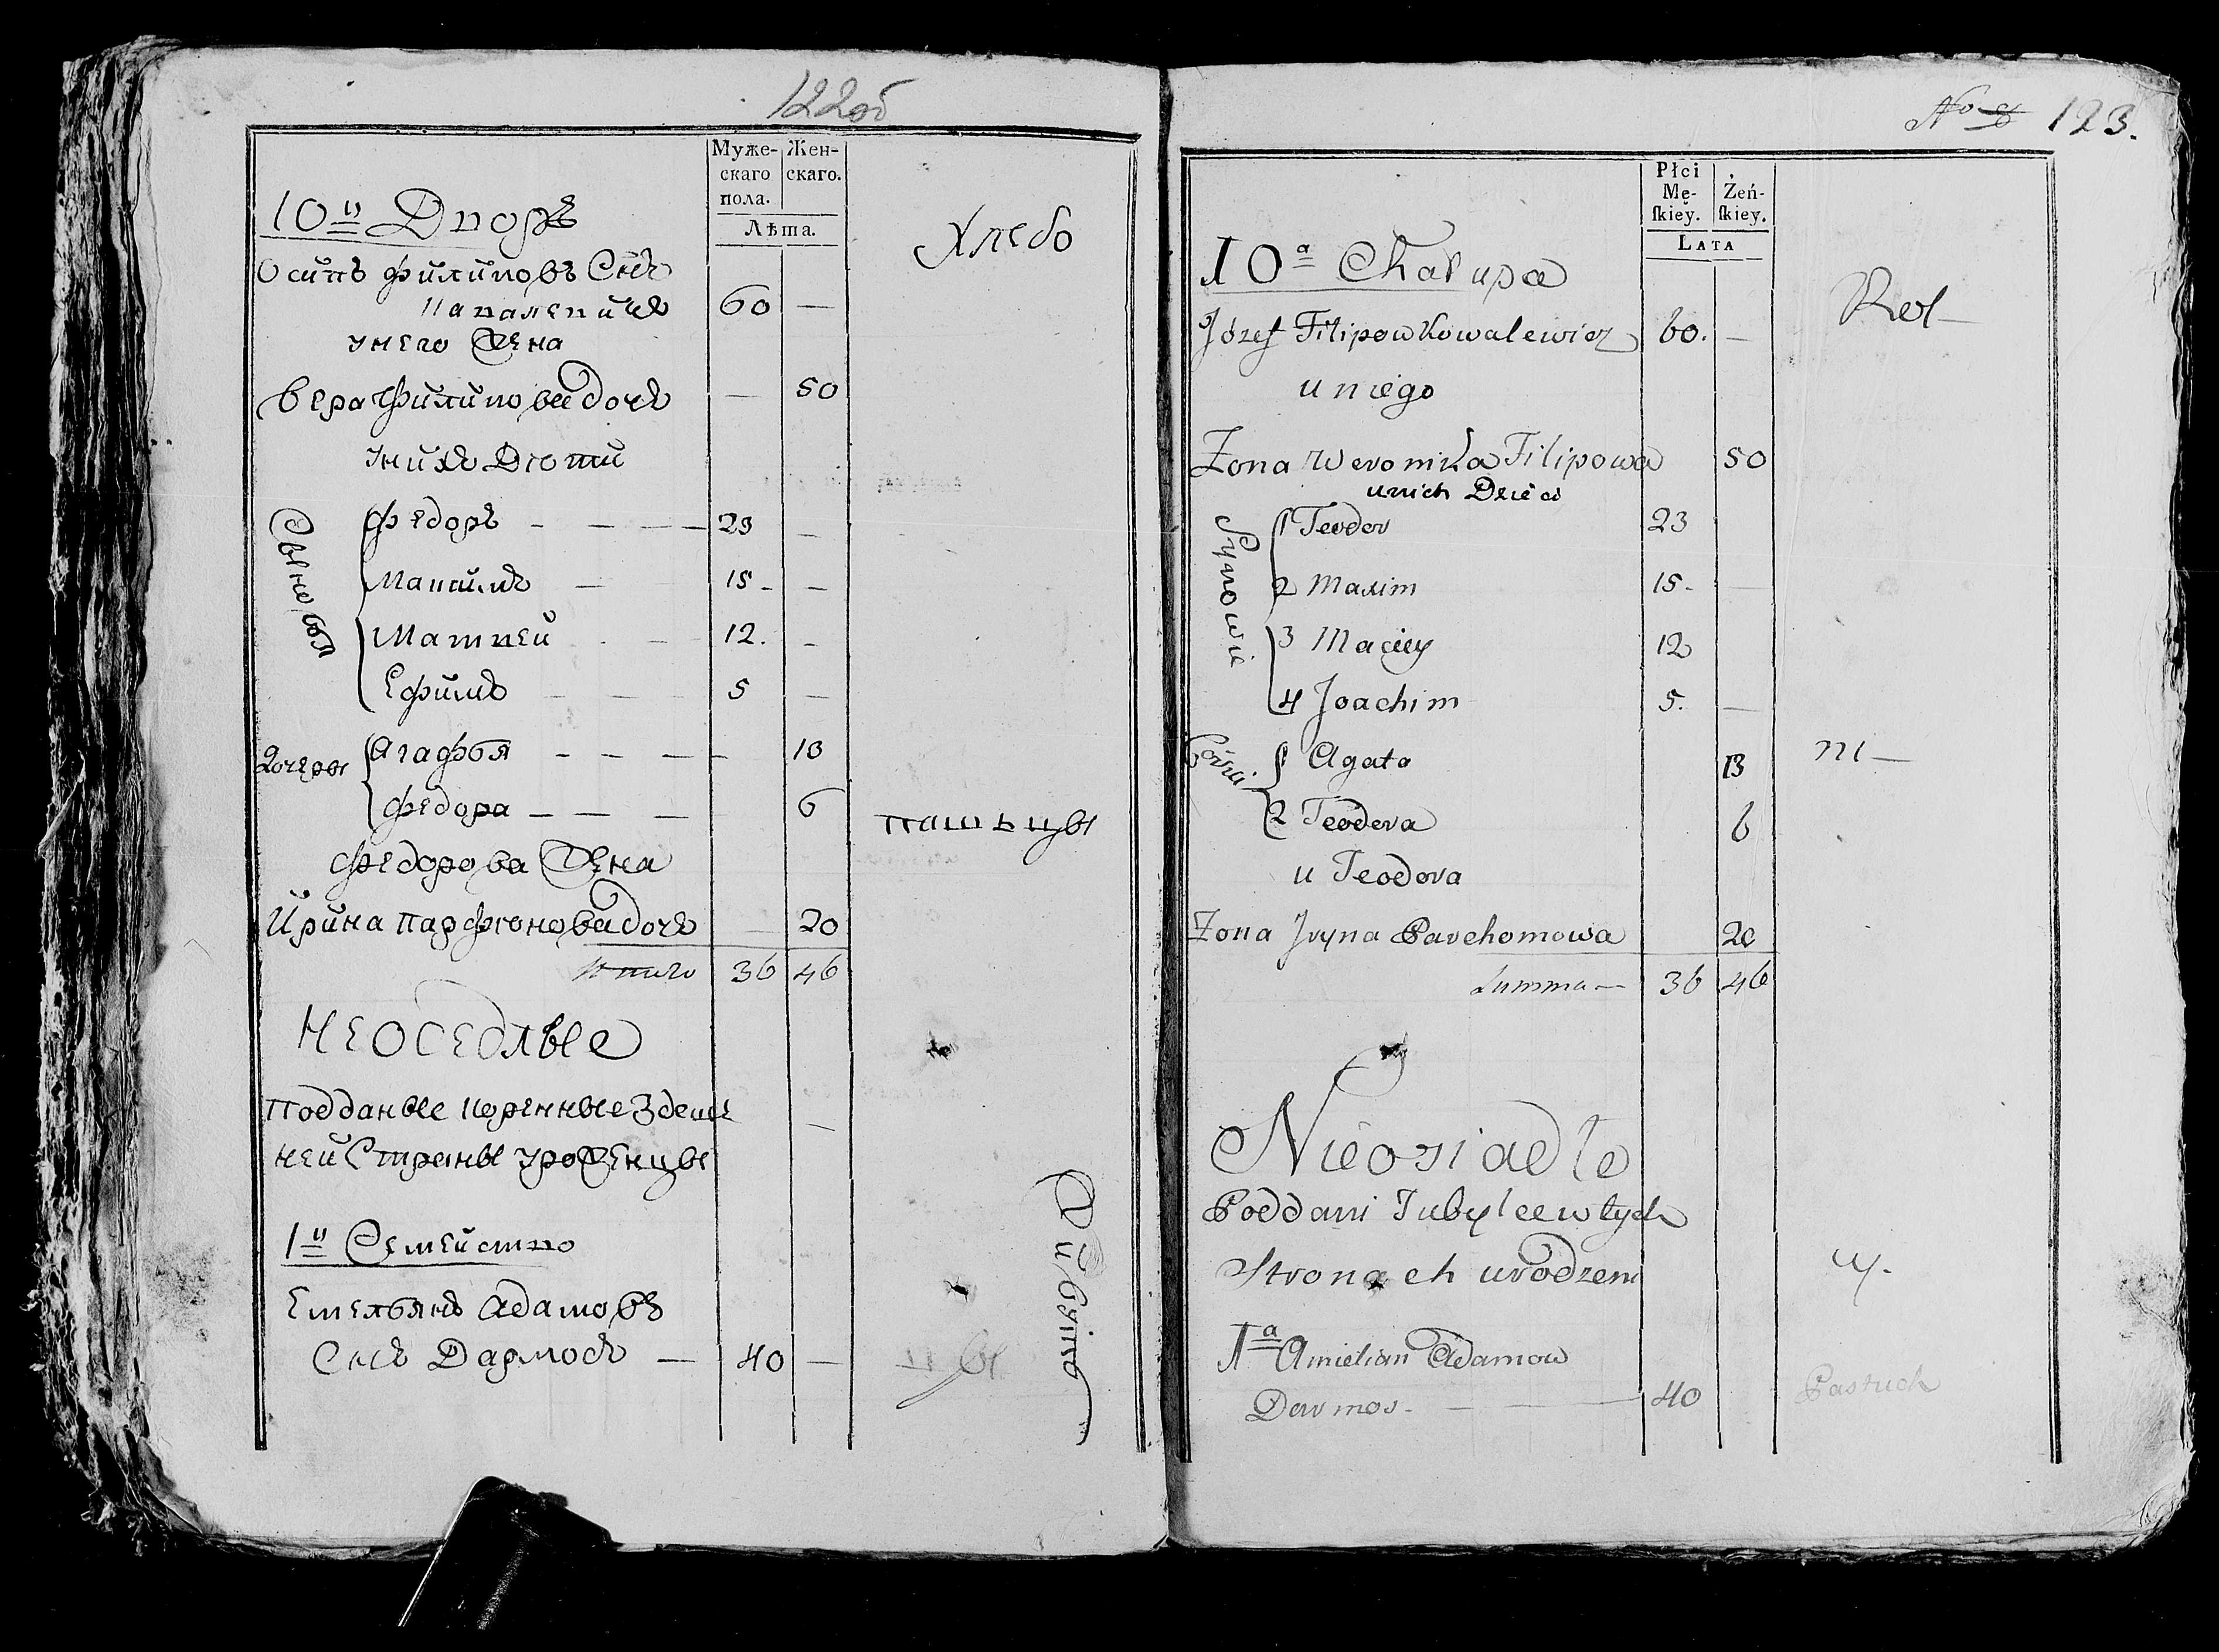 122об
Муже-
скаго
пола.
Жен-
скаго.
Лѣта.
10й Дворъ
Хлебо
Осипъ Филиповъ Снъ
Кавалевичъ 60 —
Унего Жена
Вера Филипова дочъ — 50
Унихъ Дѣти
Сыновья
Федоръ — — — — 23 —
Максимъ — 15 - —
Матвей - — 12. —
Ефимъ — — — 5 —
Дочери
Агафья — — — — 13
Федора — — — 6
пашьцы
Федорова Жена
Ирина Парфѣнова дочъ — 20
Итого 36 46
Неоседлые
подданые коренные Здеше
ней Страны уроженцы
1й Семейство
Емельянъ Адамовъ
Снъ Дармосъ — 40 —
No 8 123.
Płci
Mę-
ſkiey.
Żeń-
ſkiey.
LATA
10a Chałupa
Rol—
Józef Filipow Kowalewicz 60. —
u niego
Zona Weronika Filipowa 50
unich Dzieci
Synowie
1 Teodor 23
2 Maxim 15 - —
3 Maciey 12
4 Joachim 5. —
Córki
1 Agata 13
ni—
2 Teodora 6
u Teodora
Zona Jryna Parchomowa 20
Summa — 36 46
Nieosiadłe
Poddani Tubylce w tych
Stronach urodzeni
1a Amielian Adamow
Darmos - — — — 40
Pastuch